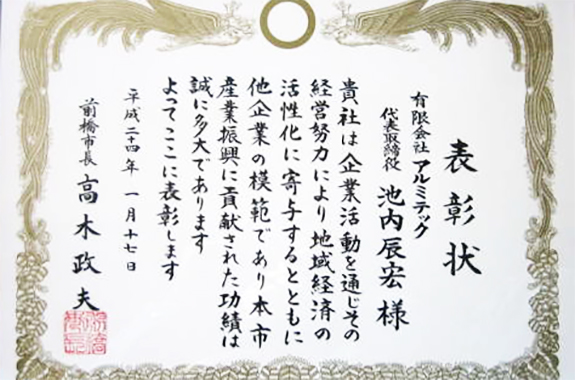 表彰状
有限会社 アルミテック
代表取締役 池内辰宏様
貴社は企業活動を通じその
経営努力により地域経済の
活性化に寄与するとともに
他企業の模範であり本市
産業振興に貢献された功績は
誠に多大であります
よってここに表彰します
平成二十四年 一月十七日
前橋市長 高木政夫